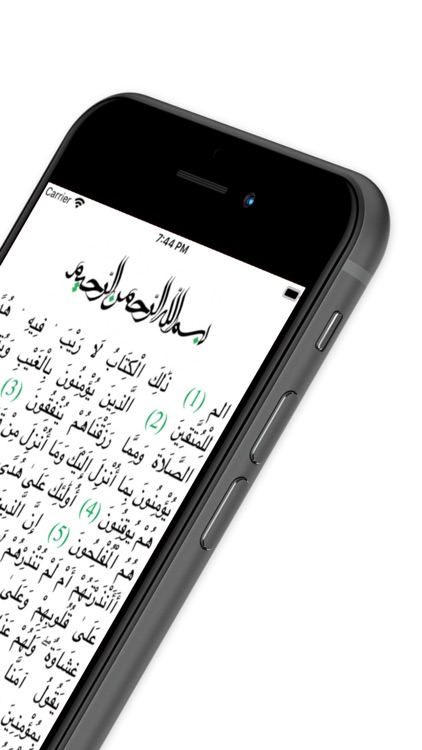 Carrier
7:44 PM
بسم الله الرحمن الرحيم
الم (1) ذَٰلِكَ الْكِتَابُ لَا رَيْبَ ۛ فِيهِ ۛ
لِّلْمُتَّقِينَ (2) الَّذِينَ يُؤْمِنُونَ بِالْغَيْبِ
الصَّلَاةَ وَمِمَّا رَزَقْنَاهُمْ يُنفِقُونَ (3)
يُؤْمِنُونَ بِمَا أُنزِلَ إِلَيْكَ وَمَا أُنزِلَ مِن
هُمْ يُوقِنُونَ (4) أُولَٰئِكَ عَلَىٰ هُدًى
هُمُ الْمُفْلِحُونَ (5) إِنَّ الَّذِينَ
أَأَنذَرْتَهُمْ أَمْ لَمْ تُنذِرْهُمْ
عَلَىٰ قُلُوبِهِمْ وَعَلَىٰ
غِشَاوَةٌ ۖ وَلَهُمْ
يَقُولُ آمَنَّا
بِمُؤْمِنِينَ